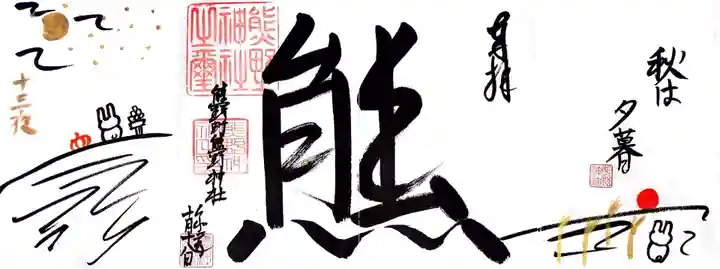 秋は
夕暮
月拝
熊
熊野神社之璽
熊野町熊野神社
十三夜